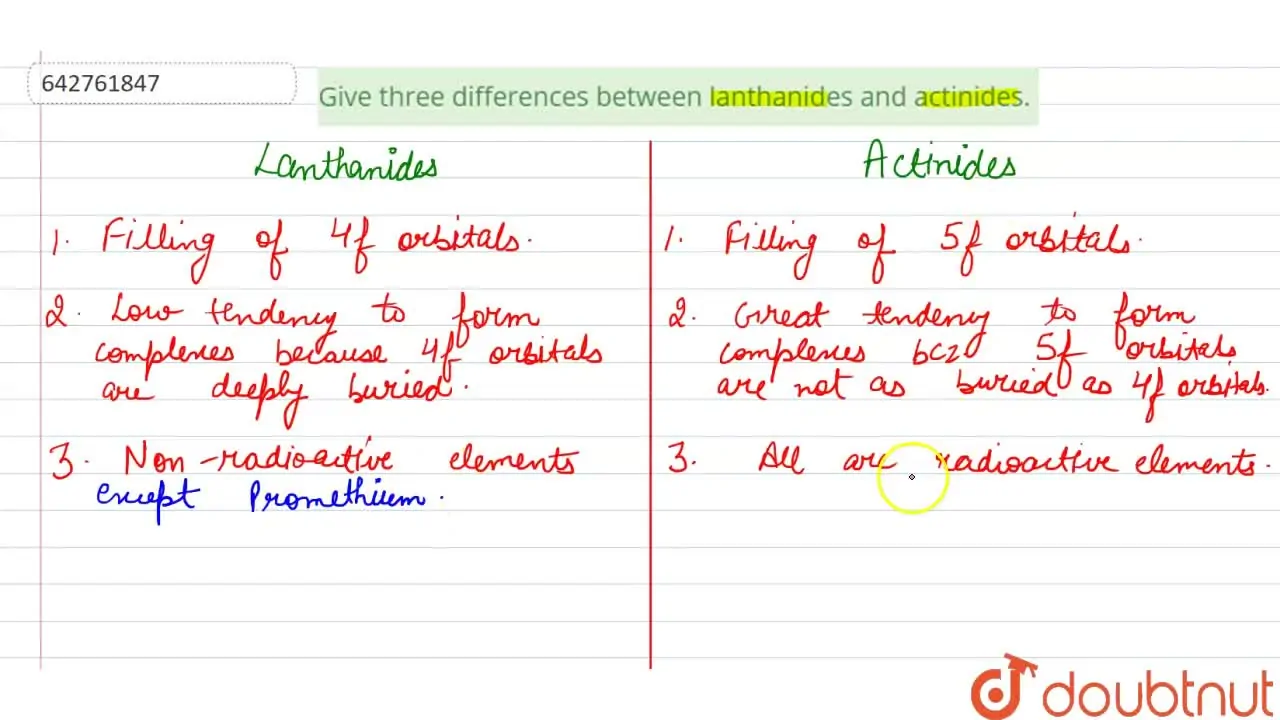 642761847
Give three differences between lanthanides and actinides.
Lanthanides
1. Filling of 4f orbitals.
2. Low tendency to form
complexes because 4f orbitals
are deeply buried.
3. Non-radioactive elements
except Promethium.
Actinides
1. Filling of 5f orbitals.
2. Great tendency to form
complexes bcz 5f orbitals
are not as buried as 4f orbitals.
3. All are radioactive elements.
doubtnut